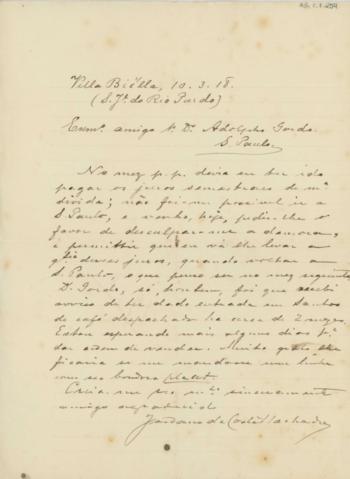 AG.1.1.254
Villa Biélla, 10.3.18.
(S. J. do Rio Pardo)
Exmo. amigo Sr. Dr. Adolpho Gordo.
S. Paulo.
No mez p.p. devia eu ter ido
pagar os juros semestraes de ma
divida; não foi-me possivel ir a
S. Paulo, e venho, hoje, pedir-lhe o
favor de desculpar-me a demora,
e permittir que eu vá lhe levar a
qtia desses juros, quando voltar a
S. Paulo, o que penso ser no mez seguinte
Dr. Gordo, só, hontem, foi que recebi
aviso de ter dado entrada em Santos
de café despachado ha cerca de 2 mezes.
Estou esperando mais alguns dias
dar ordem de vender. Muito grato lhe
ficaria se me mandasse uma linha
com seu bondoso placet.
Creia-me seu mto sinceramente
amigo agradecido
da Costa Machado